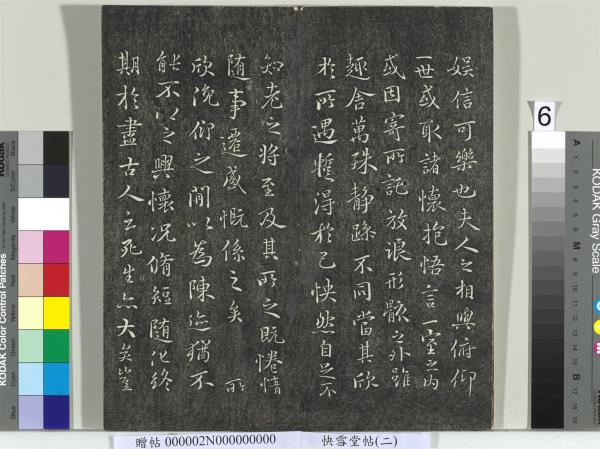 娛信可樂也夫人之相與俯仰
一世或取諸懷抱悟言一室之內
或因寄所託放浪形骸之外雖
趣舍萬殊静躁不同當其欣
於所遇蹔得於己怏然自足不
知老之將至及其所之既惓情
随事遷感慨係之矣 所
欣俛仰之間以為陳迹猶不
能不以之興懷况脩短随化終
期於盡古人云死生亦大矣豈
6
KODAK Color Control Patches
Blue
Cyan
Green
Yellow
Red
Magenta
White
3/Color
Black
KODAK Gray Scale
A 1 2 3 4 5 6 M 8 9 10 11 12 13 14 15 B 17 18 19
贈帖 000002N000000000
快雪堂帖(二)